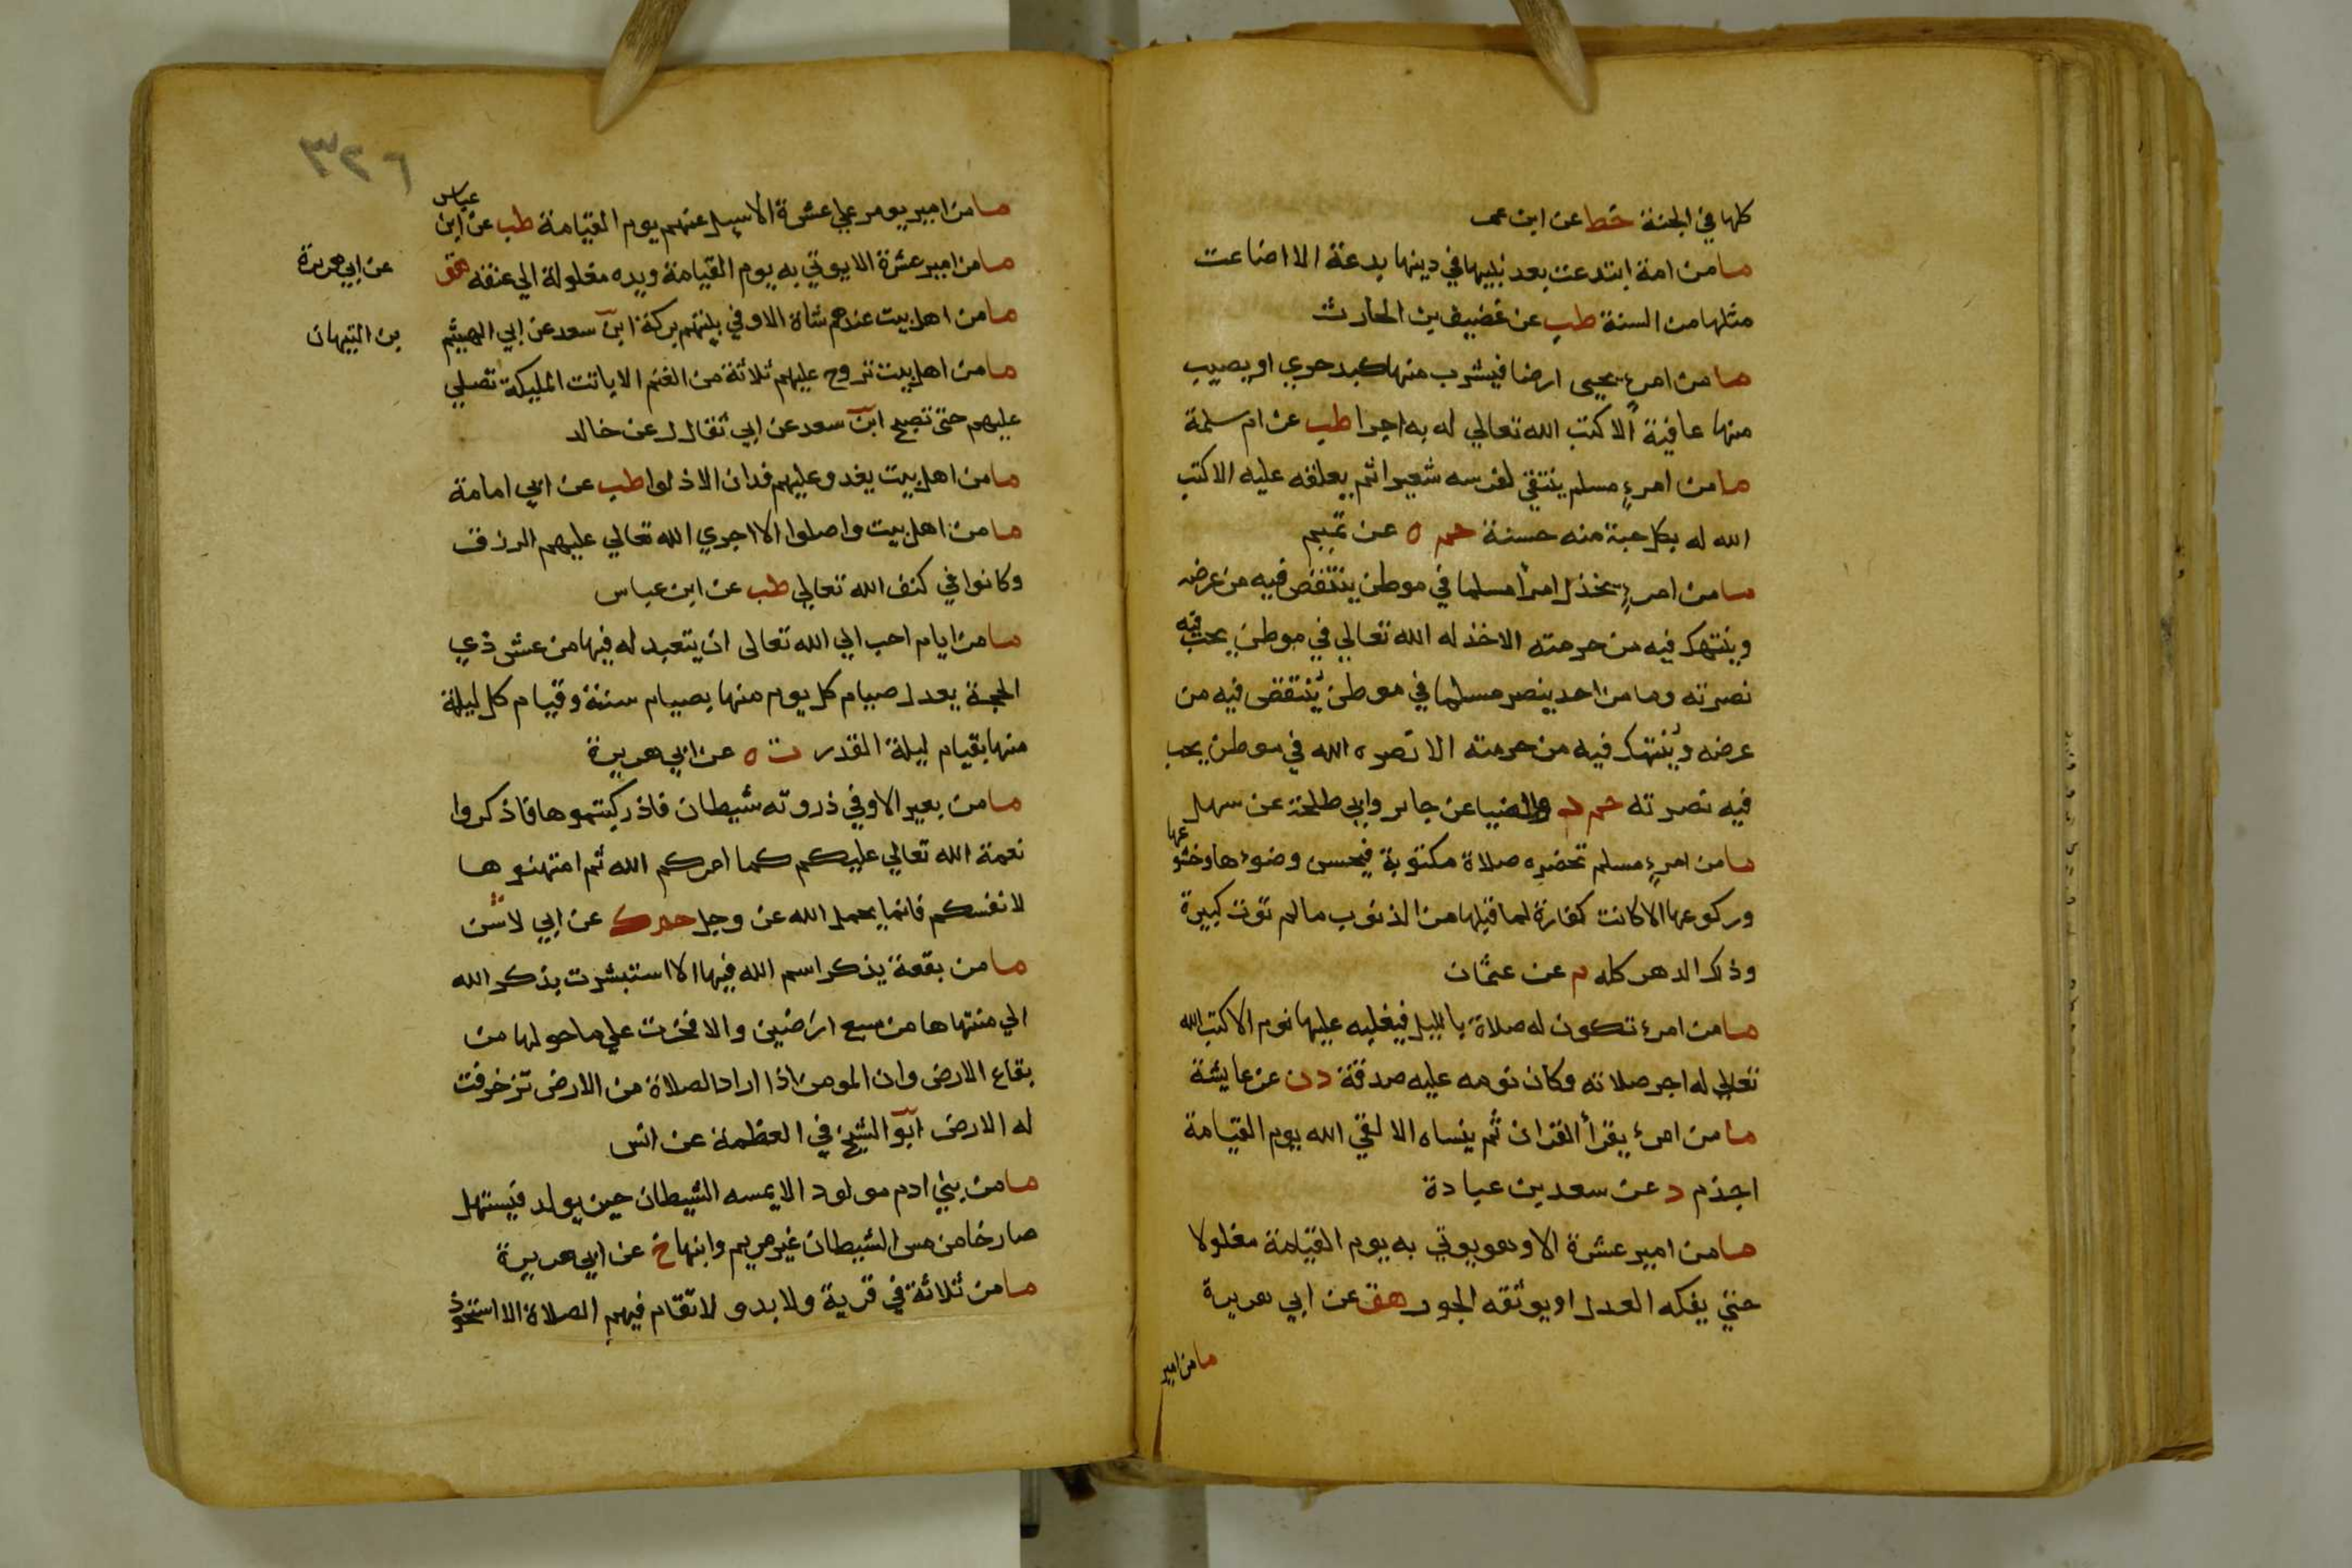 كلها في الجنة خط عن ابن عمر
ما من امة ابتدعت بعد نبيها في دينها بدعة الا اضاعت
مثلها من السنة طب عن غضيف بن الحارث
ما من امرءٍ يحيى ارضا فيشرب منها كبد حري او يصيب
منها عافية الا كتب الله تعالي له به اجرا طب عن ام سلمة
ما من امرءٍ مسلم ينتقي لفرسه شعيرا ثم يعلفه عليه الا كتب
الله له بكل حبة منه حسنة حم ه عن تميم
ما من امرءٍ يخذل امرأ مسلما في موطن ينتقص فيه من عرضه
وينتهك فيه من حرمته الا خذله الله تعالي في موطن يحب فيه
نصرته وما من احد ينصر مسلما في موطن يُنتقص فيه من
عرضه ويُنتهك فيه من حرمته الا نصره الله في موطن يحب
فيه نصرته حم د والضيا عن جابر وابي طلحة عن سهل
ما من امرءٍ مسلم تحضره صلاة مكتوبة فيحسن وضوءها وخشوعها
وركوعها الا كانت كفارة لما قبلها من الذنوب ما لم تؤت كبيرة
وذلك الدهر كله م عن عثمان
ما من امرء تكون له صلاة بالليل فيغلبه عليها نوم الا كتب الله
تعالي له اجر صلاته وكان نومه عليه صدقة د ن عن عايشة
ما من امرء يقرأ القران ثم ينساه الا لقي الله يوم القيامة
اجذم د عن سعد بن عبادة
ما من امير عشرة الا وهو يوتي به يوم القيامة مغلولا
حتي يفكه العدل او يوثقه الجور هق عن ابي هريرة
ما من امير
٣٢٦
ما من امير يومر علي عشرة الا سيل عنهم يوم القيامة طب عن ابن عباس
ما من امير عشرة الا يوتي به يوم القيامة ويده مغلولة الي عنقه هق عن ابي هريرة
ما من اهل بيت عندهم شاة الا وفي بيتهم بركة ابن سعد عن ابي الهيثم بن التيهان
ما من اهل بيت تروح عليهم ثلاثة من الغنم الا باتت المليكة تصلي
عليهم حتى تصبح ابن سعد عن ابي ثفال عن خالد
ما من اهل بيت يغدو عليهم فدان الا ذلوا طب عن ابي امامة
ما من اهل بيت واصلوا الا اجري الله تعالي عليهم الرزق
وكانوا في كنف الله تعالي طب عن ابن عباس
ما من ايام احب الي الله تعالى ان يتعبد له فيها من عشر ذي
الحجة يعدل صيام كل يوم منها بصيام سنة وقيام كل ليلة
منها بقيام ليلة القدر ت ه عن ابي هريرة
ما من بعير الا وفي ذروته شيطان فاذ ركبتموها فاذكروا
نعمة الله تعالي عليكم كما امركم الله ثم امتهنوها
لانفسكم فانما يحمل الله عز وجل حم ك عن ابي لاس
ما من بقعة يذكر اسم الله فيها الا استبشرت بذكر الله
الي منتهاها من سبع ارضين والا فخرت علي ما حولها من
بقاع الارض وان المومن اذا اراد الصلاة من الارض تزخرفت
له الارض ابو الشيخ في العظمة عن انس
ما من بني ادم مولود الا يمسه الشيطان حين يولد فيستهل
صارخا من مس الشيطان غير مريم وابنها خ عن ابي هريرة
ما من ثلاثة في قرية ولا بدو لا تقام فيهم الصلاة الا استحوذ